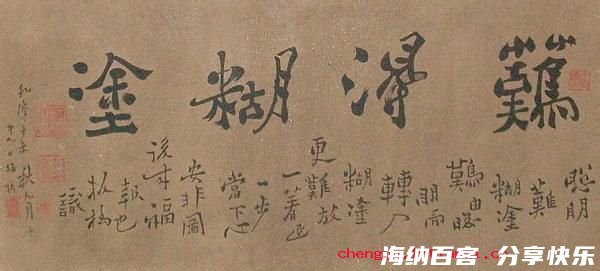 難得糊塗
聰明
難
糊塗
難由聰
明而
轉入
糊塗
更難放
一著退
一步
當下心
安非圖
後來福
報也
板橋
識
乾隆辛未秋九月十
有九日板橋
海纳百客 分享快乐